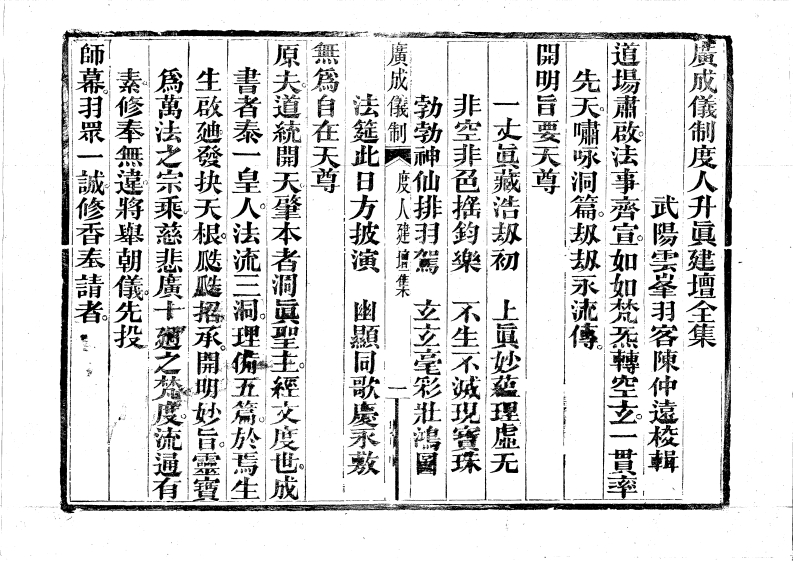 廣成儀制度人升眞建壇全集
武陽雲峯羽客陳仲遠校輯
道場肅啟。法事齊宣。如如梵炁轉空玄。一貫率
先天。嘯咏洞篇。刼刼永流傳。
開明旨要天尊
一丈眞藏浩刼初　上眞妙蘊理虛无
非空非色搖鈞樂　不生不滅現寶珠
勃勃神仙排羽駕　玄玄毫彩壯鴻圖
法筵此日方披演　幽顯同歌慶永敷
廣成儀制 度人建壇集 一
無爲自在天尊
原夫。道統開天。肇本者洞眞聖主。經文度世。成
書者泰一皇人。法流三洞。理備五篇。於焉生
生啟廸。發抉天根。颷颷招承。開明妙旨。靈寶
爲萬法之宗。乘慈悲廣十廽之梵度。流通有
素。修奉無違。將舉朝儀。先投
師幕。羽眾一誠。修香奉請者。